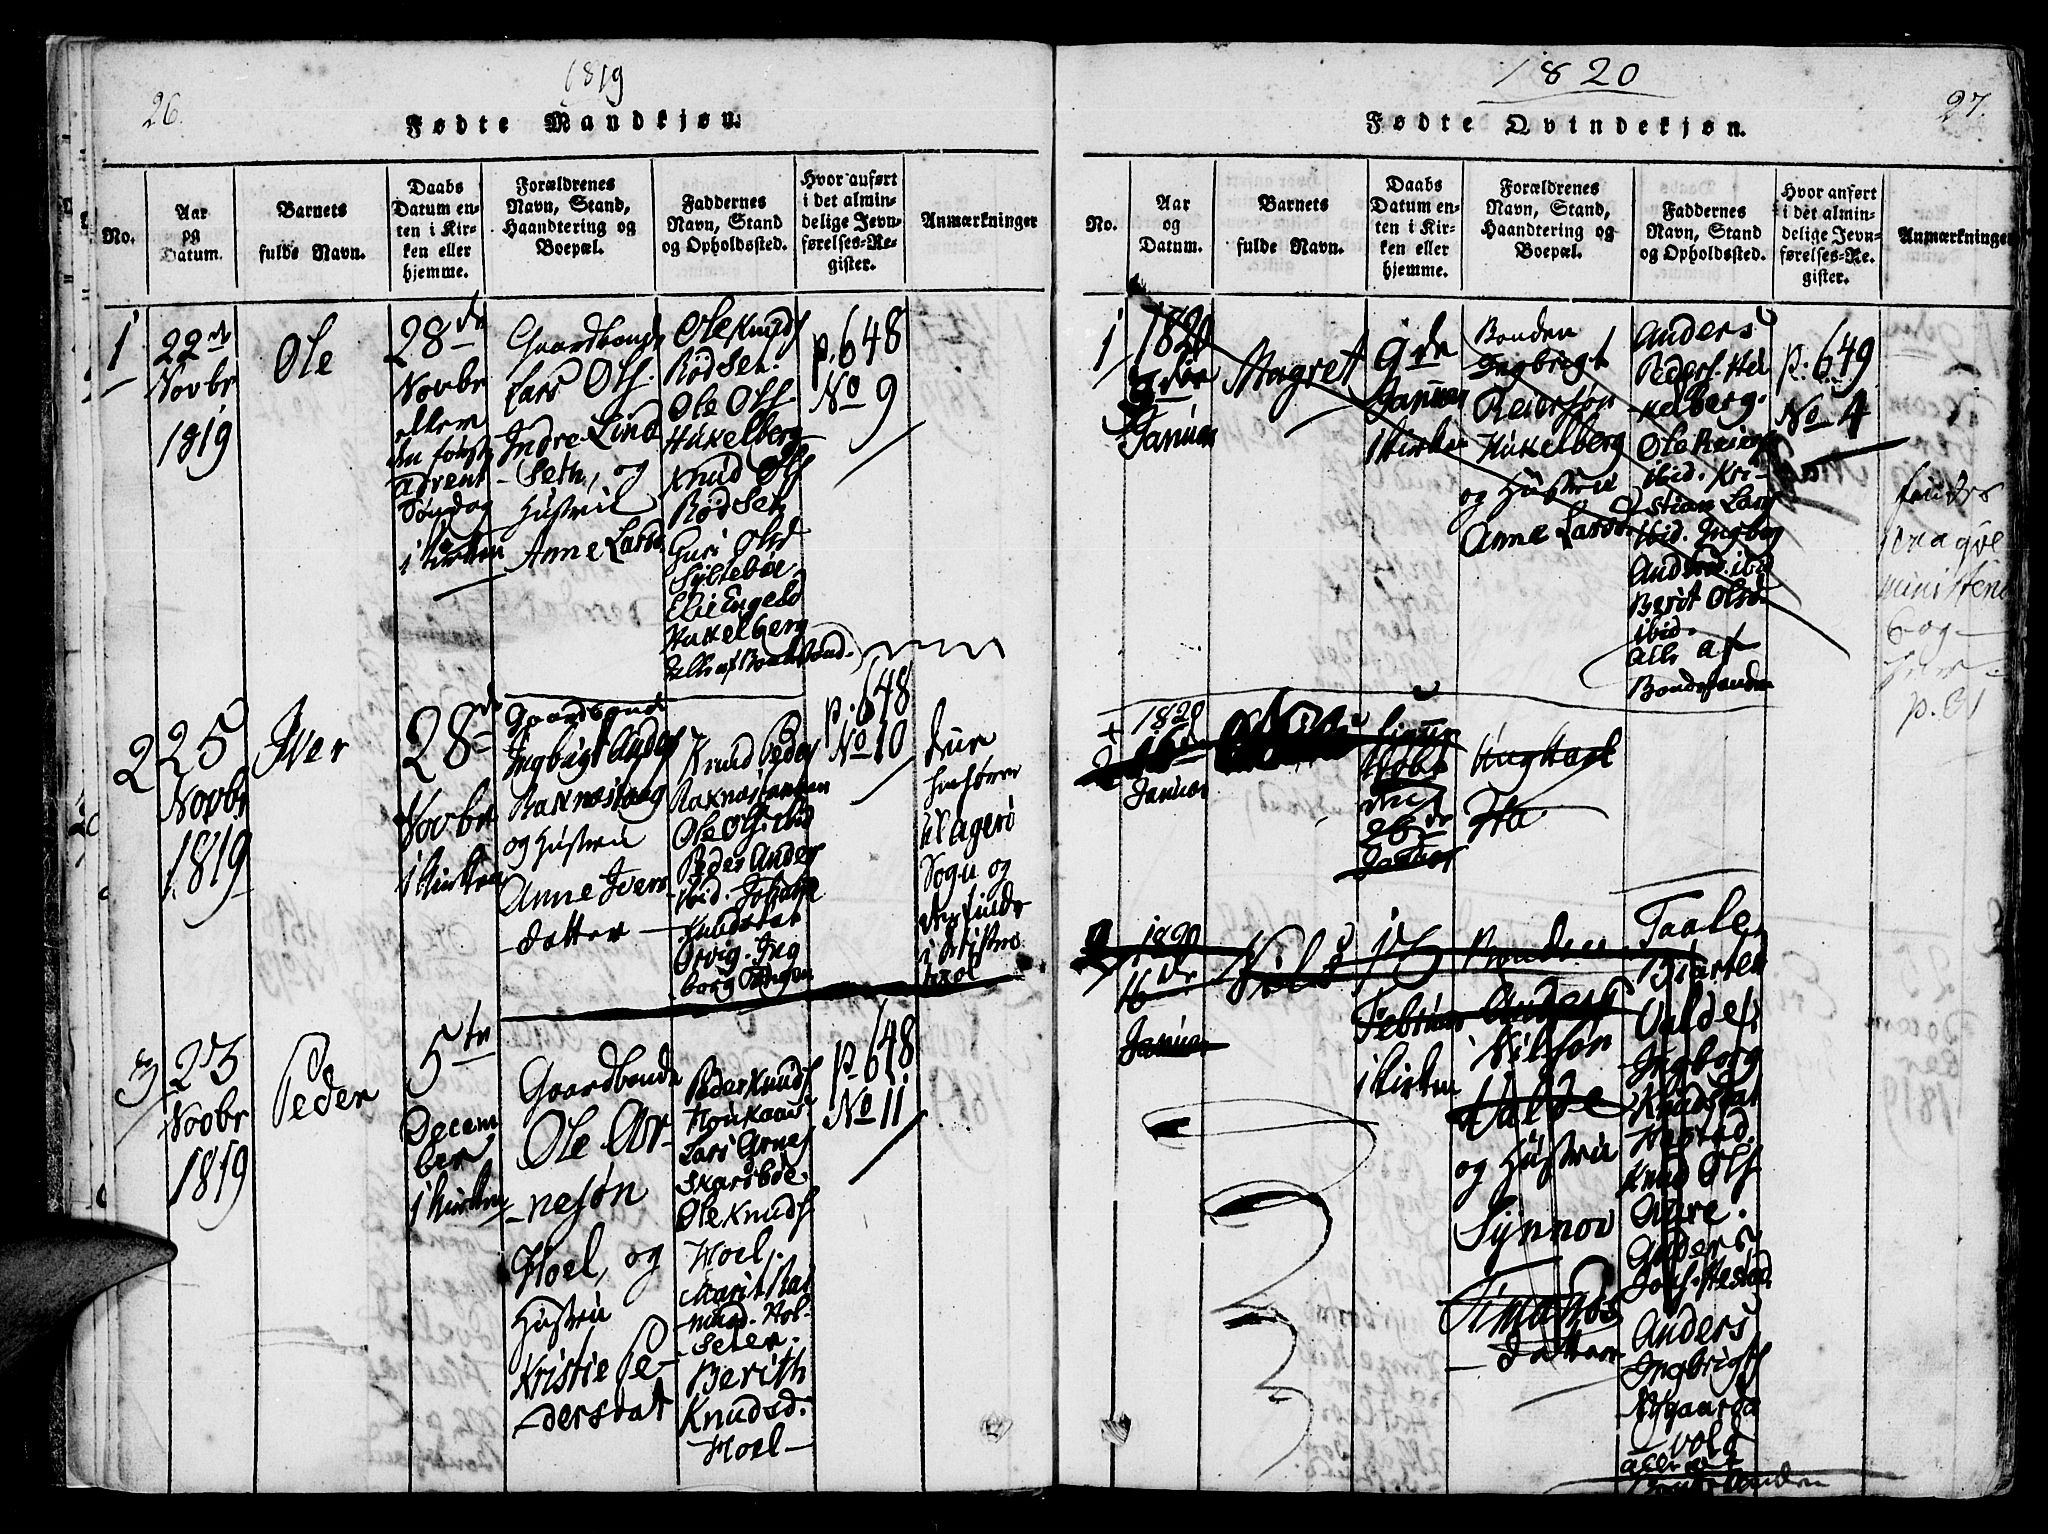 26.
1819
Fødte Mandkjøn.
No.
Aar
og
Datum.
Barnets
fulde Navn.
Daabs
Datum en-
ten i Kir-
ken eller
hjemme.
Forældrenes
Navn, Stand,
Haandtering og
Boepæl.
Faddernes
Navn, Stand
og Opholdssted.
Hvor anført
i det almin-
delige Jevn-
førelses-Re-
gister.
Anmærkninger
1
22de
Novbr
1819
Ole
28de
Novbr
eller
Advent
Søndag
i Kirken
Gaardbonde
Lars Ols.
Indre Lind
-Seth, og
Hustrue
Anne Larsd.
Ole Knuds
Rødset.
Ole Ols.
Hukelberg
Knud Ols
Rødset
Guri Olsd
Syltebøe.
Elie Engelsd
Hukelberg
alle af Bondestand.
p. 648
No 9
2
25
Novbr
1819
Iver
28de
Novbr
i Kirken
Gaardbonde
Ingbrigt Anders
og Hustrue
Anne Ivers
-datter
Knud Peders
Ole Ols. ibid
Peder Anders
ibid.
Knudsdat
Ørvig. Ing
borg
p. 648
No 10
Sogn og
3
23
Novbr
1819
Peder
5te
Decem
ber
i Kirken
Gaardbonde
Ole Ar-
-nesøn
Hoel, og
Hustrue
Kristie Pe-
-dersdat
Peder Knuds
Lars Arnes
Skarsbøe
Ole Knuds
Hoel,
Marit Ras
-musd. Hol-
-seter.
Berith
Knudsd.
Hoel
p. 648
No 11
1820
27.
Fødte Qvindekjøn.
No.
Aar
og
Datum.
Barnets
fulde Navn.
Daabs
Datum en-
ten i Kir-
ken eller
hjemme.
Forældrenes
Navn, Stand,
Haandtering og
Boepæl.
Faddernes
Navn, Stand
og Opholdssted.
Hvor anført
i det almin-
delige Jevn-
førelses-Re-
gister.
Anmærkninger
1
1820
Januar
Magret
9de
Januar
i Kirken
Bonden
Ingbrigt
Reiersøn
Hukelberg
og Hustrue
Anne Larsd.
Anders
Peders. Hu
-kelberg.
Ole Reiers
ibid. Kri-
-stian Lars
ibid. Ingbog
Andersd. ibid
Berit Olsd.
ibid.
alle af
Bondestanden
p. 649
No 4
bog
p. 31
2
1820
16de
Januar
26de
Januar
2
1820
16de
Januar
Nils
13
Februar
i Kirken
Bonden
Anders
Nilsøn
Valde
og Hustrue
Synnov
Simonds
-datter
Taale
Valde.
Ingborg
Knudsdat
Knud Ols
Agre.
Anders
Ingbrigts
Nygaards
vold
alle af
Bondestanden